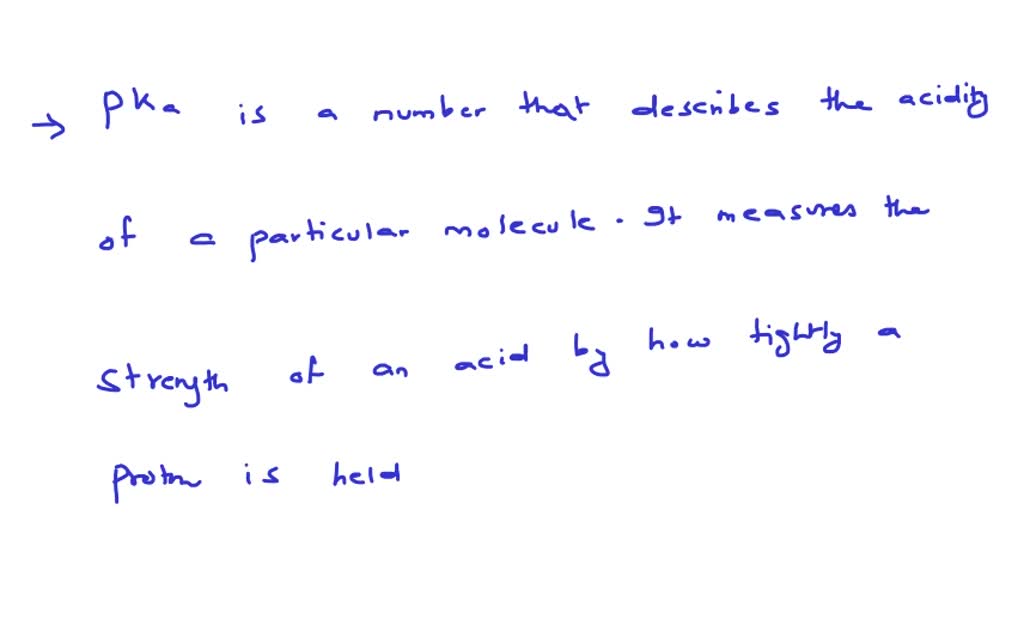 → pKa is a number that describes the acidity
of a particular molecule. It measures the
strength of an acid by how tightly a
proton is held